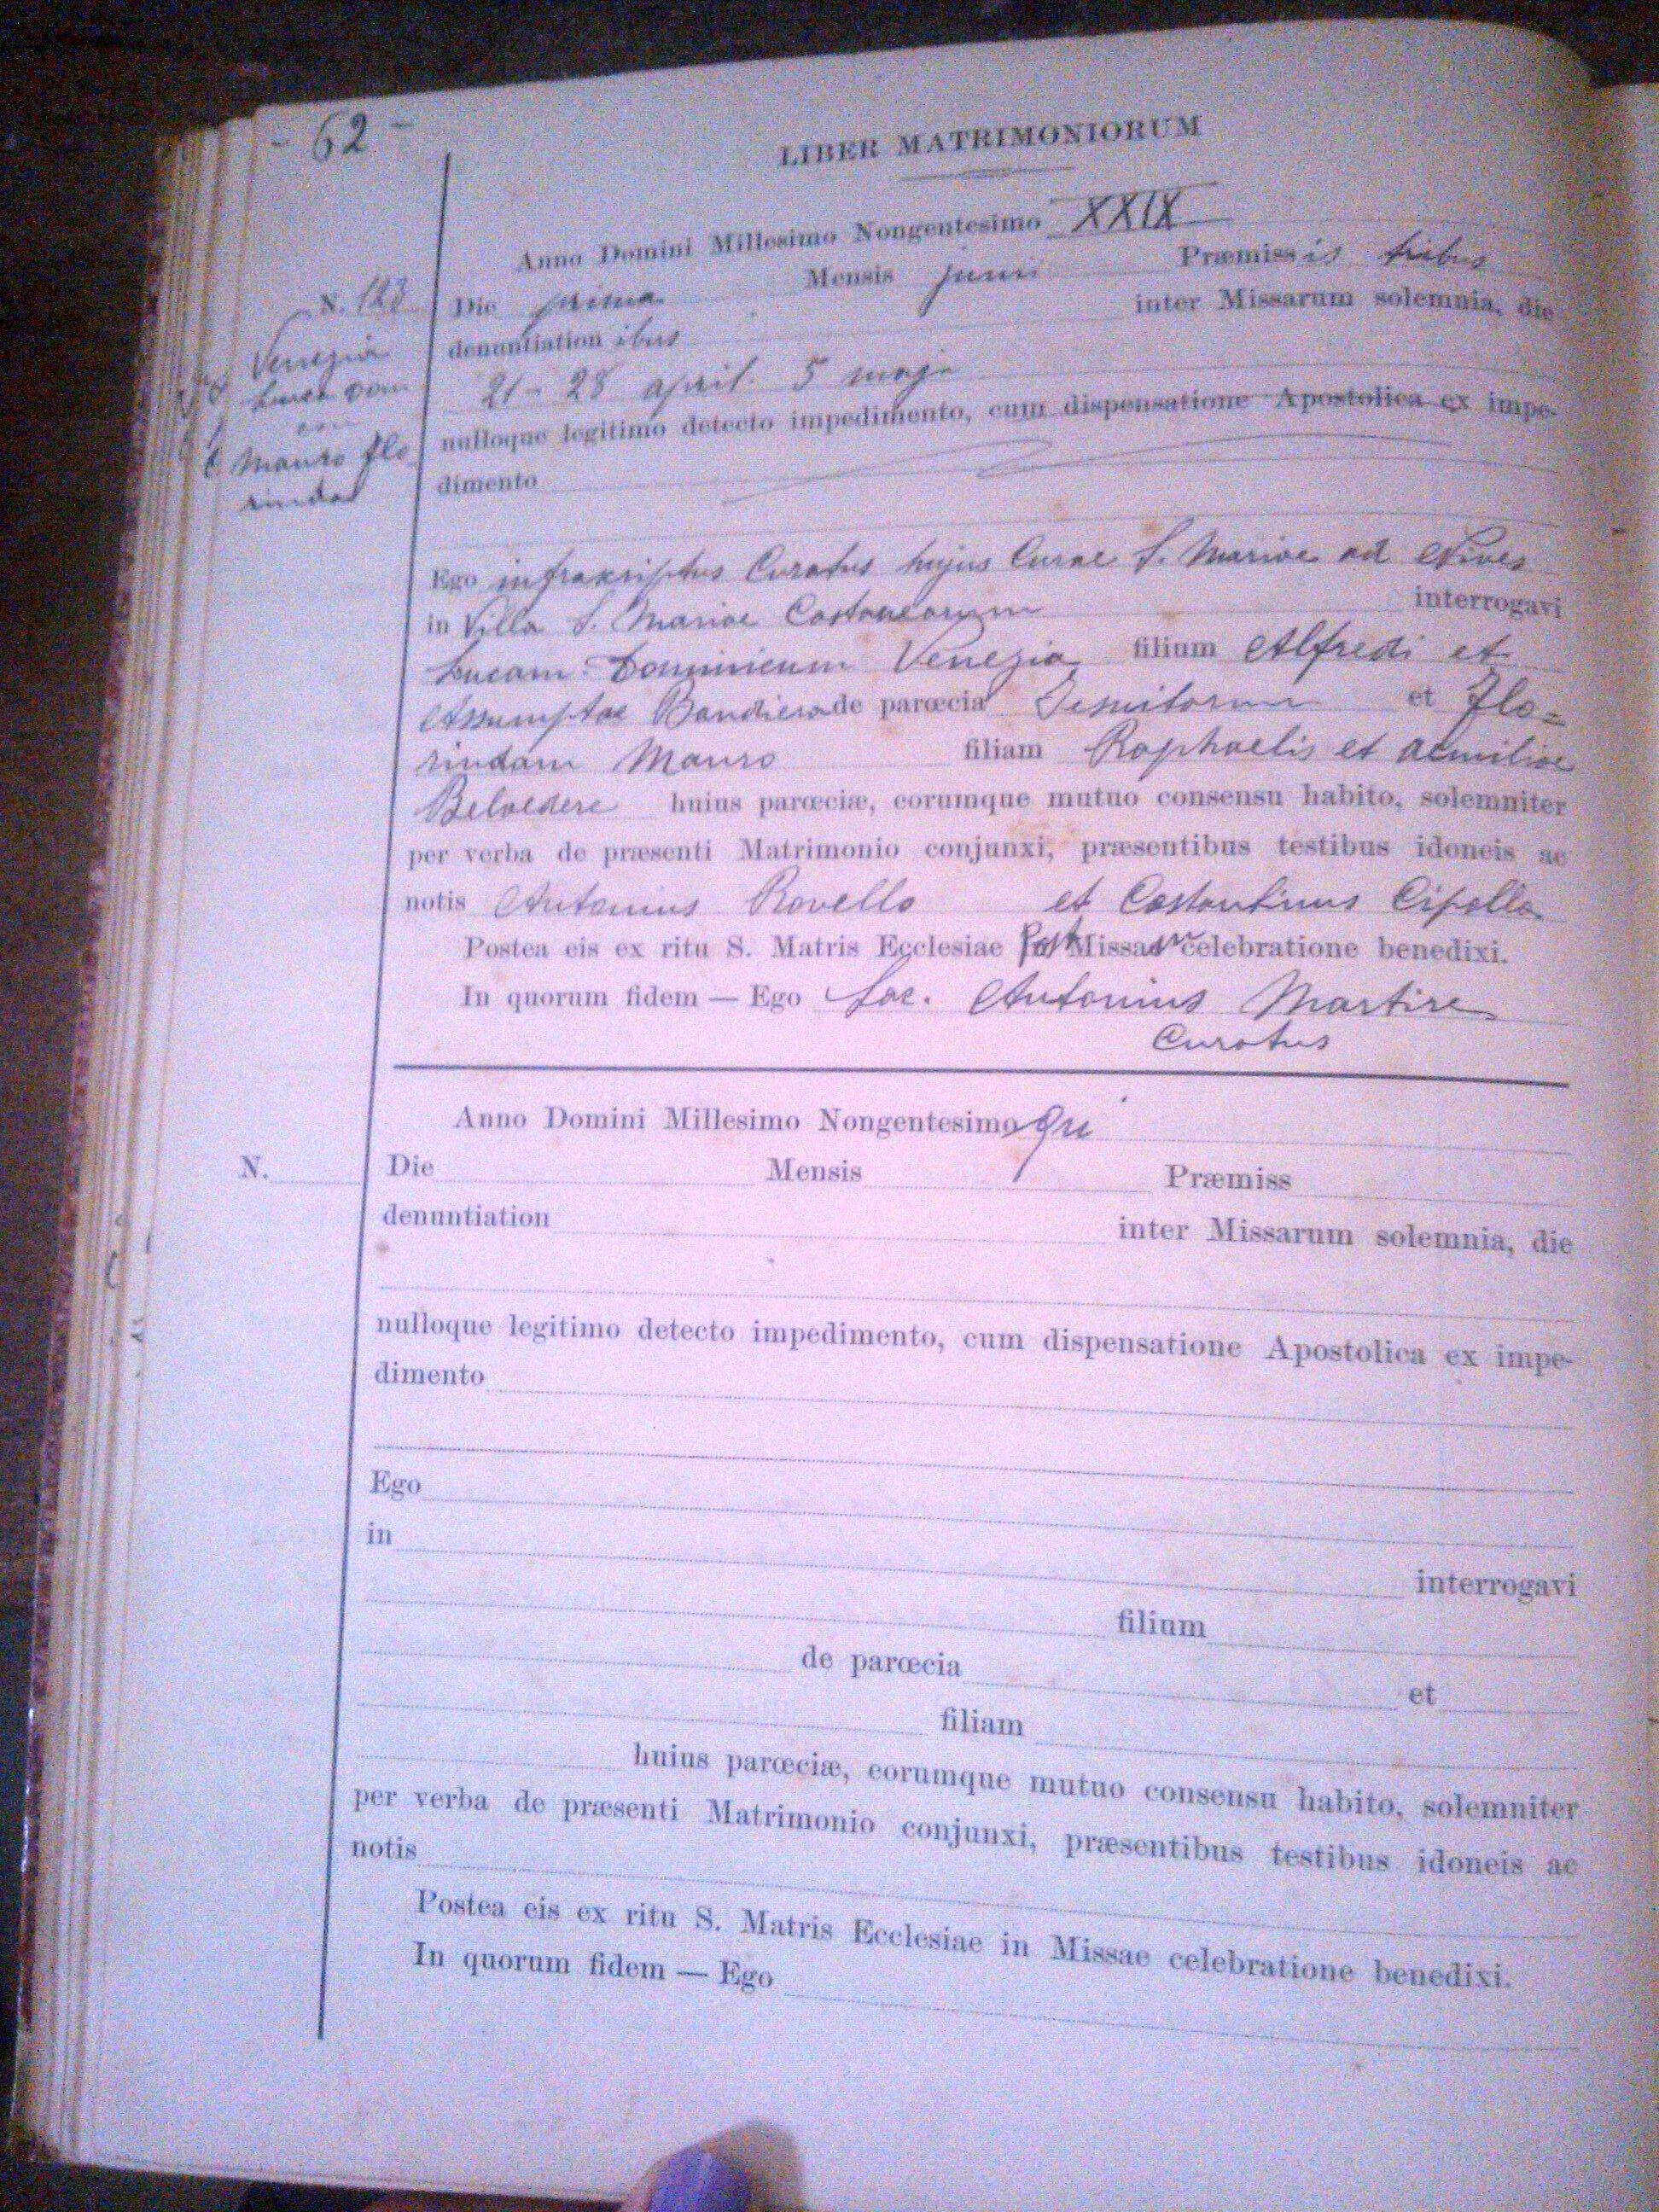 - 62 -
LIBER MATRIMONIORUM
Anno Domini Millesimo Nongentesimo XXIX
N. 128 Die prima Mensis junii Præmissis tribus
denuntiationibus inter Missarum solemnia, die
Venezia
Luca Dom
21 - 28 april. 5 maja
nulloque legitimo detecto impedimento, cum dispensatione Apostolica ex impe-
Mauro Flo
rinda
dimento
Ego infrascriptus Curatus hujus Curae S. Mariae ad Nives
in Villa S. Mariae Castanearum interrogavi
Lucam Dominicum Venezia filium Alfredi et
Assumptae Bandiera de parœcia Jesuitarum et Flo=
rindam Mauro filiam Raphaelis et Aemiliae
Belvedere huius parœciæ, eorumque mutuo consensu habito, solemniter
per verba de præsenti Matrimonio conjunxi, præsentibus testibus idoneis ac
notis Antonius Rovello et Costantinus Cipolla
Postea eis ex ritu S. Matris Ecclesiae Post Missae celebratione benedixi.
In quorum fidem — Ego Sac. Antonius Martire
Curatus
Anno Domini Millesimo Nongentesimo
N. Die Mensis Præmiss
denuntiation inter Missarum solemnia, die
nulloque legitimo detecto impedimento, cum dispensatione Apostolica ex impe-
dimento
Ego
in interrogavi
filium
de parœcia et
filiam
huius parœciæ, eorumque mutuo consensu habito, solemniter
per verba de præsenti Matrimonio conjunxi, præsentibus testibus idoneis ac
notis
Postea eis ex ritu S. Matris Ecclesiae in Missae celebratione benedixi.
In quorum fidem — Ego